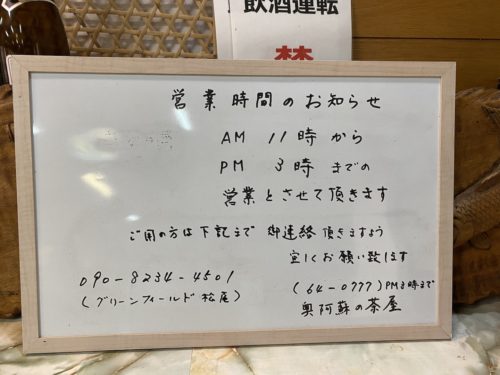 飲酒運転
営業時間のお知らせ
AM 11時から
PM 3時までの
営業とさせて頂きます
ご用の方は下記まで御連絡頂きますよう
宜しくお願い致します
090-8234-4501
(グリーンフィールド松尾)
(64-0777)PM3時まで
奥阿蘇の茶屋